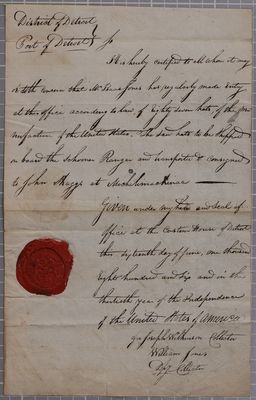 District of Detroit
Port of Detroit
It is hereby certified to all whom it may
concern that Mr. Jones has regularly made entry
at this office according to law of Eighty seven Hats of the
manufacture of the United States. The said hats to be shipped
on board the Schooner Ranger and transported & consigned
to John at Michilimackinac
Given under my hand and Seal of
Office at the Custom House of Detroit
this sixteenth day of June, one thousand
eight hundred and six and in the
thirtieth year of the Independence
of the United States of America
Joseph Wilkinson Collector
William Jones
Dy Collector